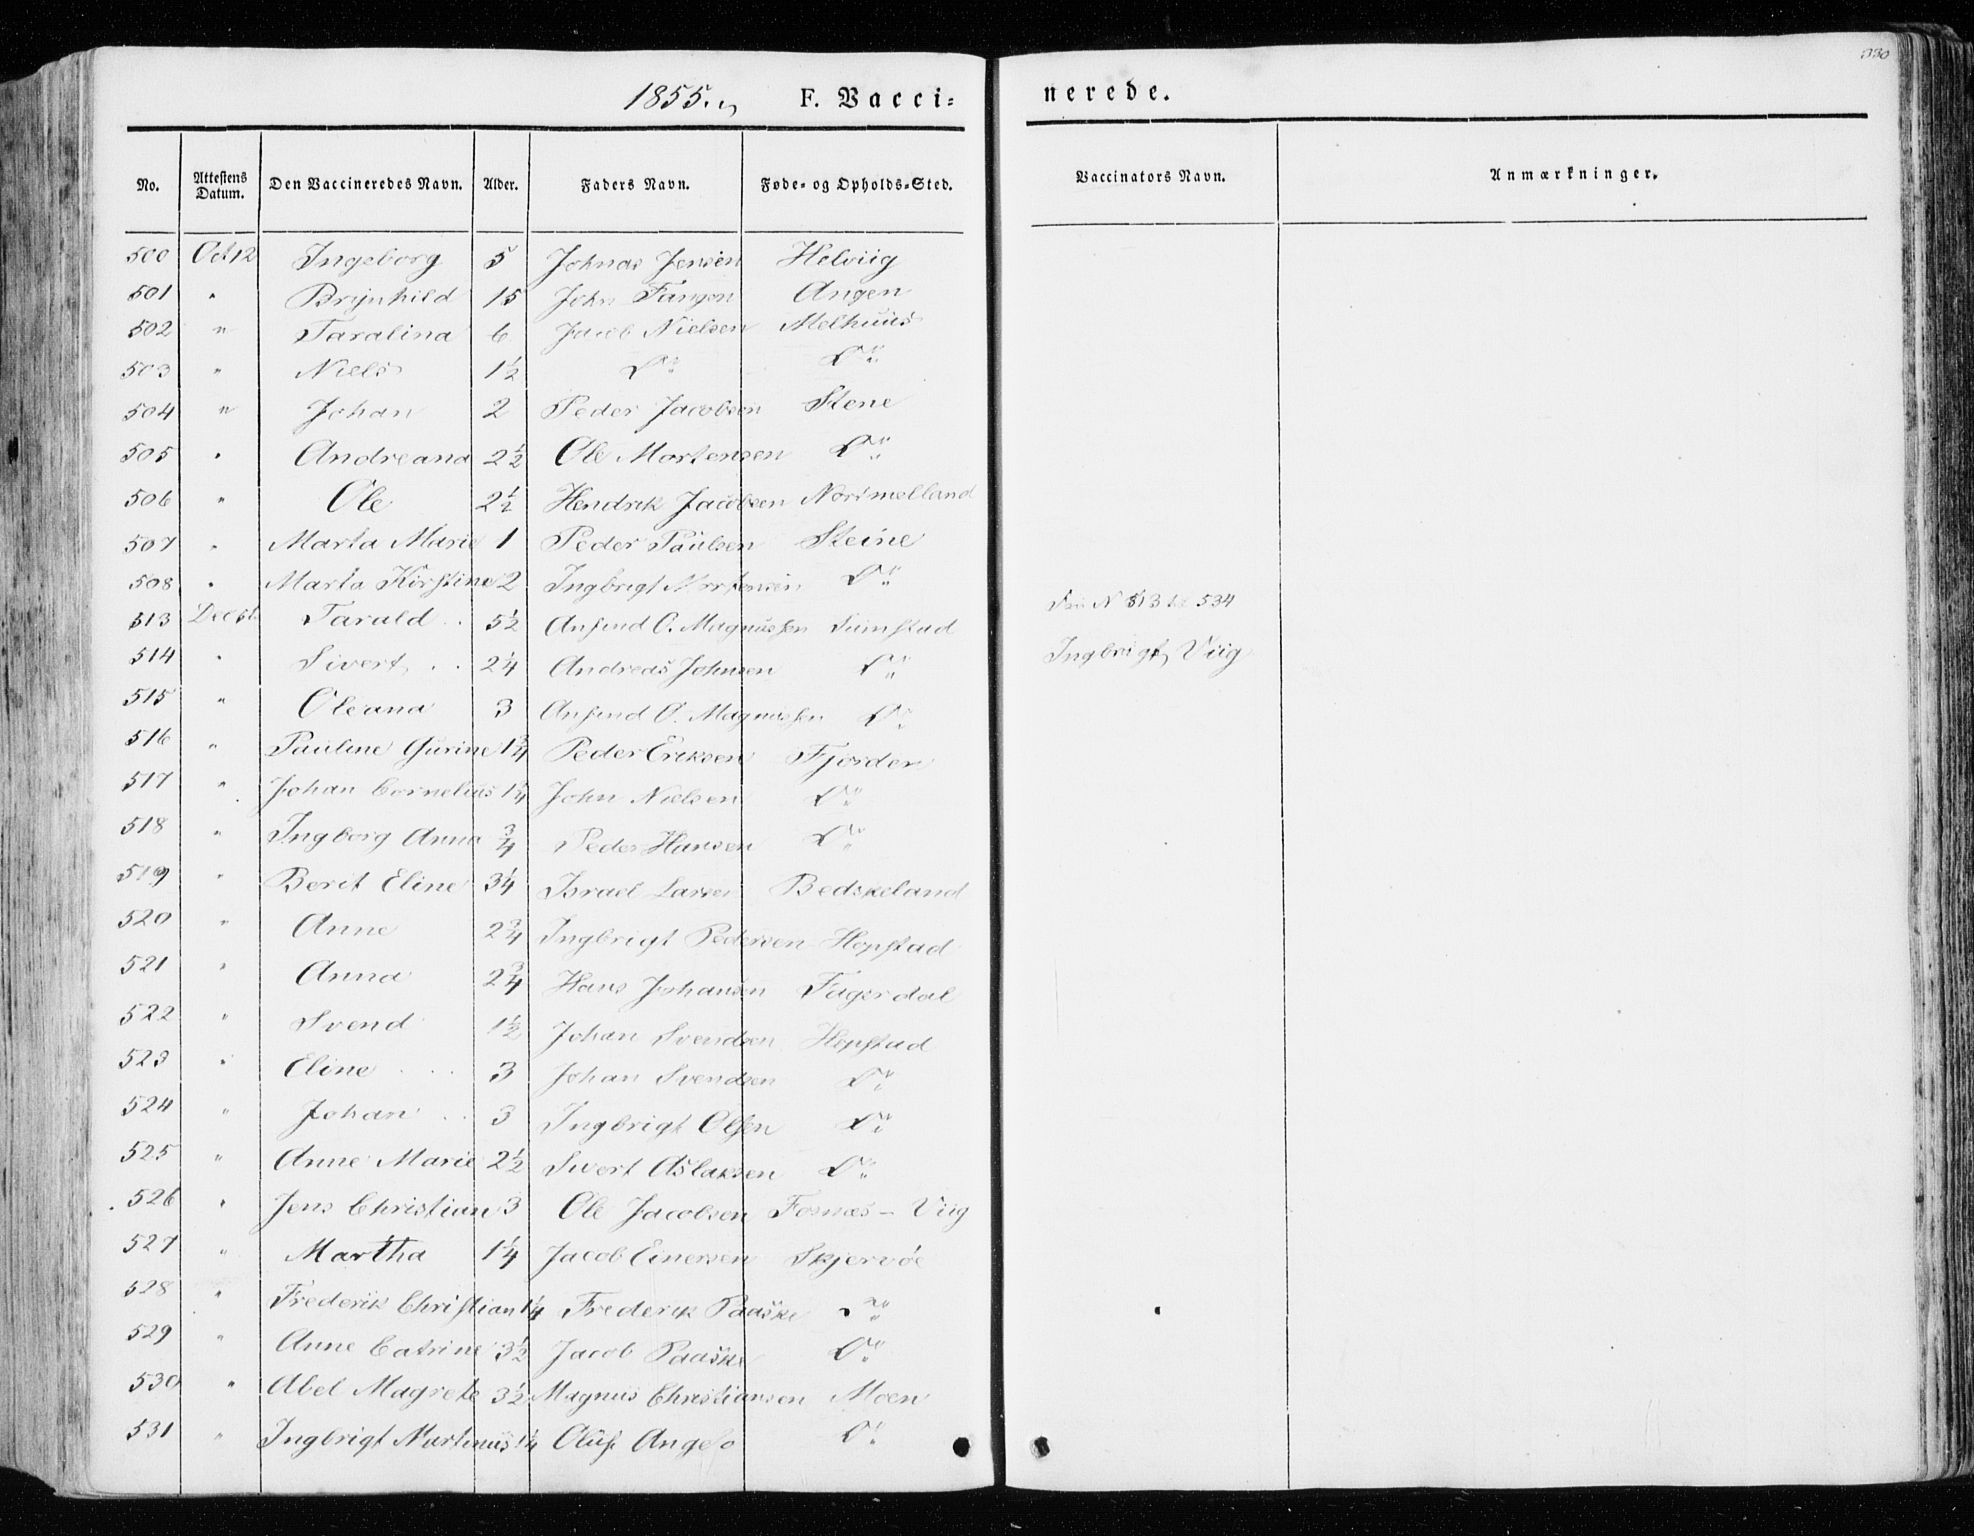 330
1855. F. Vacci= nerede.
No. Attestens Datum. Den Vaccineredes Navn. Alder. Faders Navn. Føde- og Opholds-Sted. Vaccinators Navn. Anmærkninger.
500 Oct 12 Ingeborg 5 Johnas Jensen Helviig
501 " Brynhild 15 John Angen
502 " Taralina 6 Jacob Nielsen Melhuus
503 " Niels 1½ Do Do
504 " Johan 2 Peder Jacobsen Stene
505 " Andreana 2½ Ole Mortensen Do
506 " Ole 2½ Hendrik Jacobsen Norimelland
507 " Marta Marie 1 Peder Paulsen Steine
508 " Marta Kirstine 2 Ingbrigt Mortensen Do
513 Tarald 5½ Anfind O. Magnussen Sumstad Fra N 513 til 534
514 " Sivert 2¼ Andreas Johnsen Do Ingbrigt Viig
515 " Oleana 3 Anfind O. Magnussen Do
516 " Pauline Gurine 1¾ Peder Eriksen Fjorden
517 " Johan Cornelius 1¾ John Nielsen Do
518 " Ingborg Anna ¾ Peder Hansen Do
519 " Berit Eline 3¼ Israel Larsen Bedskeland
520 " Anne 2¾ Ingbrigt Pedersen Hopstad
521 " Anna 2¾ Hans Johansen Fagerdal
522 " Svend 1½ Johan Svendsen Hopstad
523 " Eline 3 Johan Svendsen Do
524 " Johan 3 Ingbrigt Olsen Do
525 " Anne Marie 2½ Sivert Aslaksen Do
526 " Jens Christian 3 Ole Jacobsen Fosnæs - Viig
527 " Martha 1¼ Jacob Einersen Skjervöe
528 " Frederik Christian 1¼ Frederik Paaske Do
529 " Anne Catrine 3½ Jacob Paaske Do
530 " Abel Magrete 3½ Magnus Christiansen Moen
531 " Ingbrigt Martinus 1¼ Oluf Do